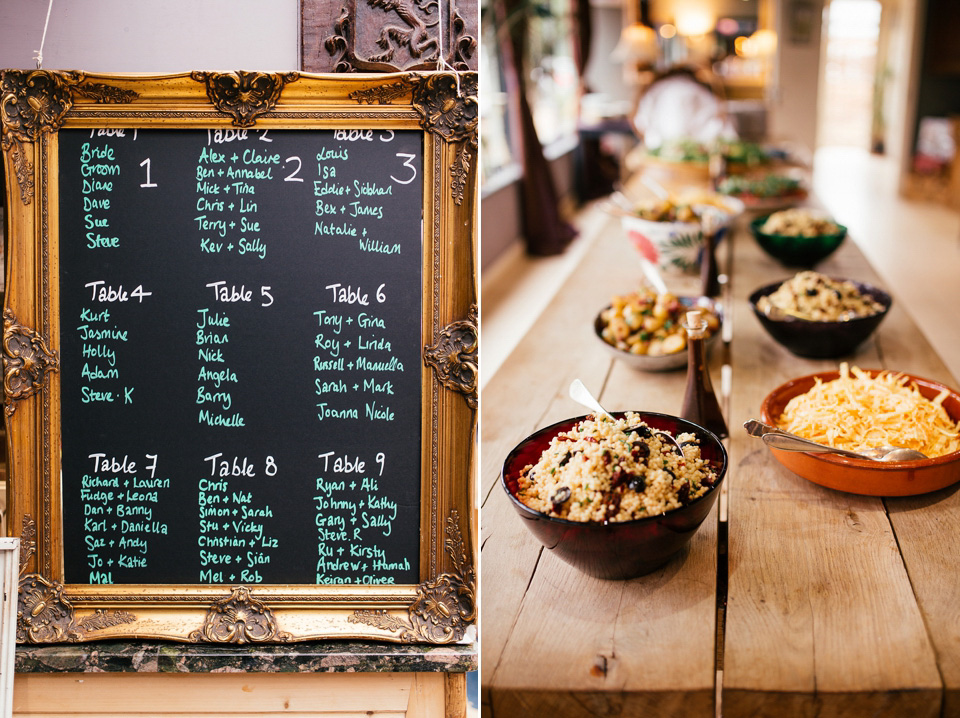 Table 1
Bride
Groom
Diane
Dave
Sue
Steve
1
Table 2
Alex + Claire
Ben + Annabel
Mick + Tina
Chris + Lin
Terry + Sue
Kev + Sally
2
Table 3
Louis
Isa
Eddie + Siobhan
Bex + James
Natalie +
William
3
Table 4
Kurt
Jasmine
Holly
Adam
Steve · K
Table 5
Julie
Brian
Nick
Angela
Barry
Michelle
Table 6
Tony + Gina
Roy + Linda
Russell + Manuella
Sarah + Mark
Joanna Nicole
Table 7
Richard + Lauren
Fudge + Leona
Dan + Banny
Karl + Daniella
Saz + Andy
Jo + Katie
Mal
Table 8
Chris
Ben + Nat
Simon + Sarah
Stu + Vicky
Christian + Liz
Steve + Siân
Mel + Rob
Table 9
Ryan + Ali
Johnny + Kathy
Gary + Sally
Steve. R
Ru + Kirsty
Andrew + Hannah
Keiran + Oliver